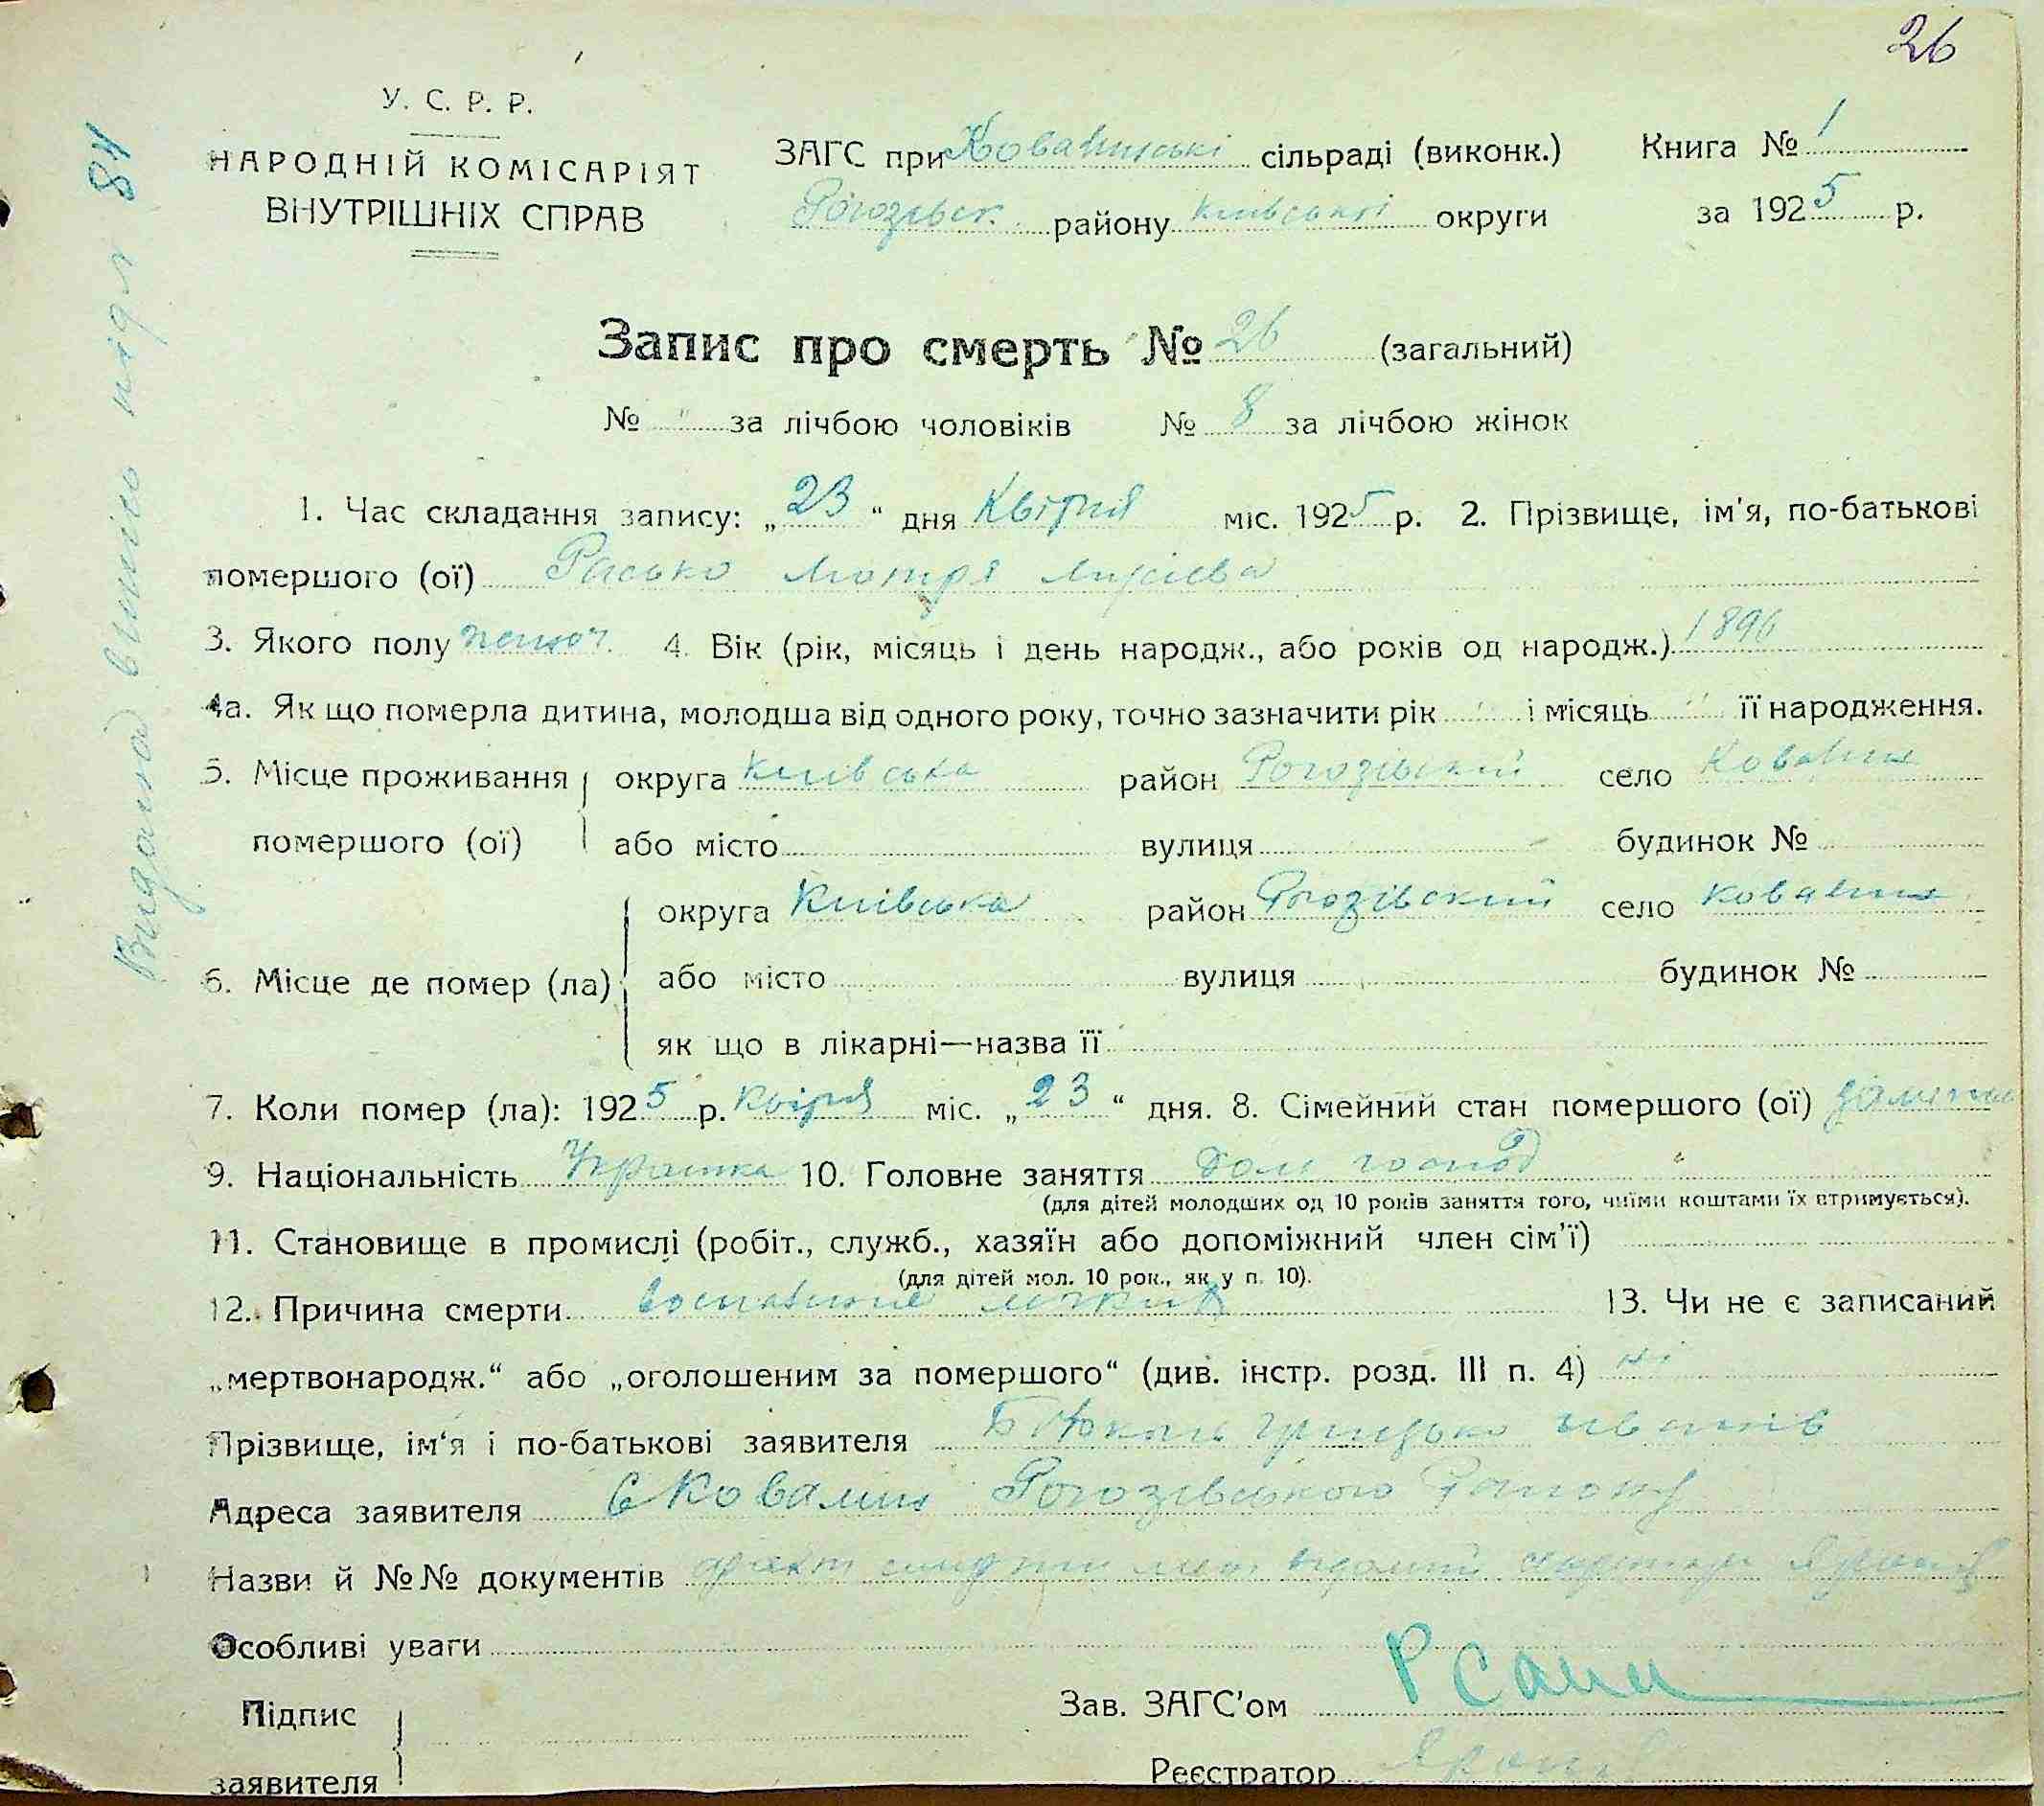 26
У. С. Р. Р.
НАРОДНІЙ КОМІСАРІЯТ
ВНУТРІШНІХ СПРАВ
ЗАГС при Ковалинські сільраді (виконк.)
Рогозівск. району Київської округи
Книга № 1
за 1925 р.
Видано витяг 84
Запис про смерть № 26 (загальний)
№ " за лічбою чоловіків № 8 за лічбою жінок
1. Час складання запису: „23“ дня Квітня міс. 1925 р. 2. Прізвище, ім'я, по-батькові
помершого (ої) Расько Мотря
3. Якого полу жіноч. 4. Вік (рік, місяць і день народж., або років од народж.) 1896
4а. Як що померла дитина, молодша від одного року, точно зазначити рік і місяць її народження.
5. Місце проживання округа Київська район Рогозівський село Ковалин
помершого (ої) або місто вулиця будинок №
округа Київська район Рогозівский село Ковалин
6. Місце де помер (ла) або місто вулиця будинок №
як що в лікарні—назва її
7. Коли помер (ла): 1925 р. Квітня міс. „23“ дня. 8. Сімейний стан помершого (ої)
9. Національність Українка 10. Головне заняття Дом господ
(для дітей молодших од 10 років заняття того, чиїми коштами їх втримується).
11. Становище в промислі (робіт., служб., хазяїн або допоміжний член сім'ї)
(для дітей мол. 10 рок., як у п. 10).
12. Причина смерти 13. Чи не є записаний
„мертвонародж.“ або „оголошеним за помершого“ (див. інстр. розд. III п. 4) ні
Прізвище, ім'я і по-батькові заявителя Грицько Іванів
Адреса заявителя с Ковалин Рогозівського Району
Назви й №№ документів факт смерти
Особливі уваги
Підпис
заявителя
Зав. ЗАГС'ом
Реєстратор